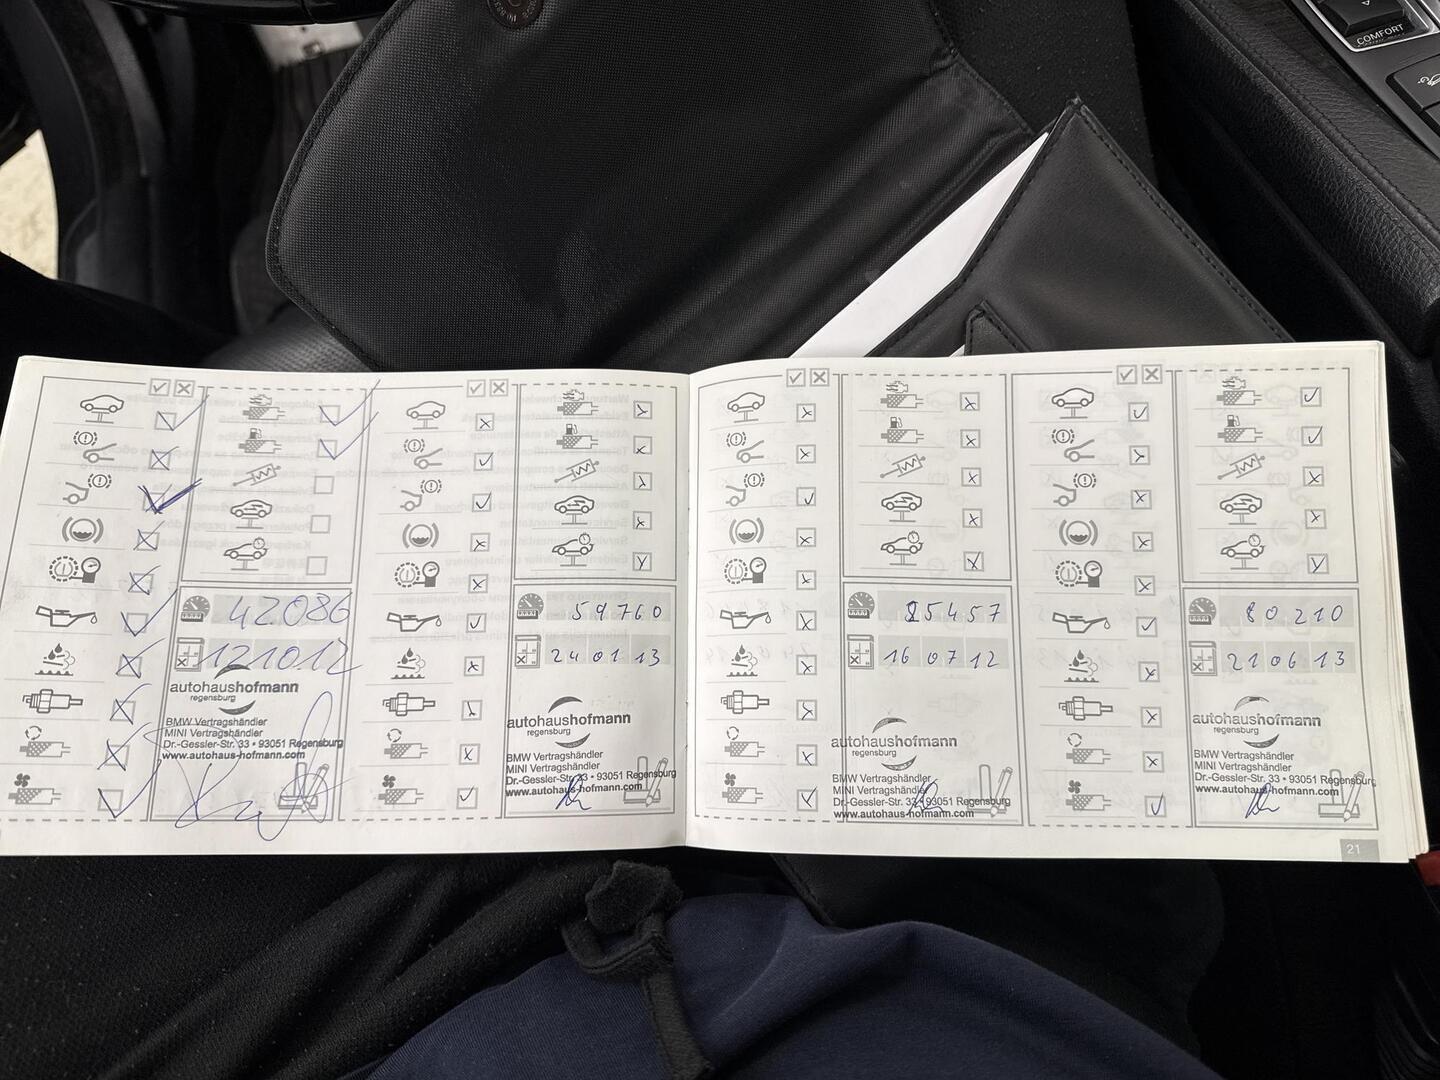 COMFORT
42086
121012
autohaushofmann
regensburg
BMW Vertragshändler
MINI Vertragshändler
Dr.-Gessler-Str. 33 • 93051 Regensburg
www.autohaus-hofmann.com
59760
24 01 13
autohaushofmann
regensburg
BMW Vertragshändler
MINI Vertragshändler
Dr.-Gessler-Str. 33 • 93051 Regensburg
www.autohaus-hofmann.com
25457
16 07 12
autohaushofmann
regensburg
BMW Vertragshändler
MINI Vertragshändler
Dr.-Gessler-Str. 33 • 93051 Regensburg
www.autohaus-hofmann.com
80210
21 06 13
autohaushofmann
regensburg
BMW Vertragshändler
MINI Vertragshändler
Dr.-Gessler-Str. 33 • 93051 Regensburg
www.autohaus-hofmann.com
21